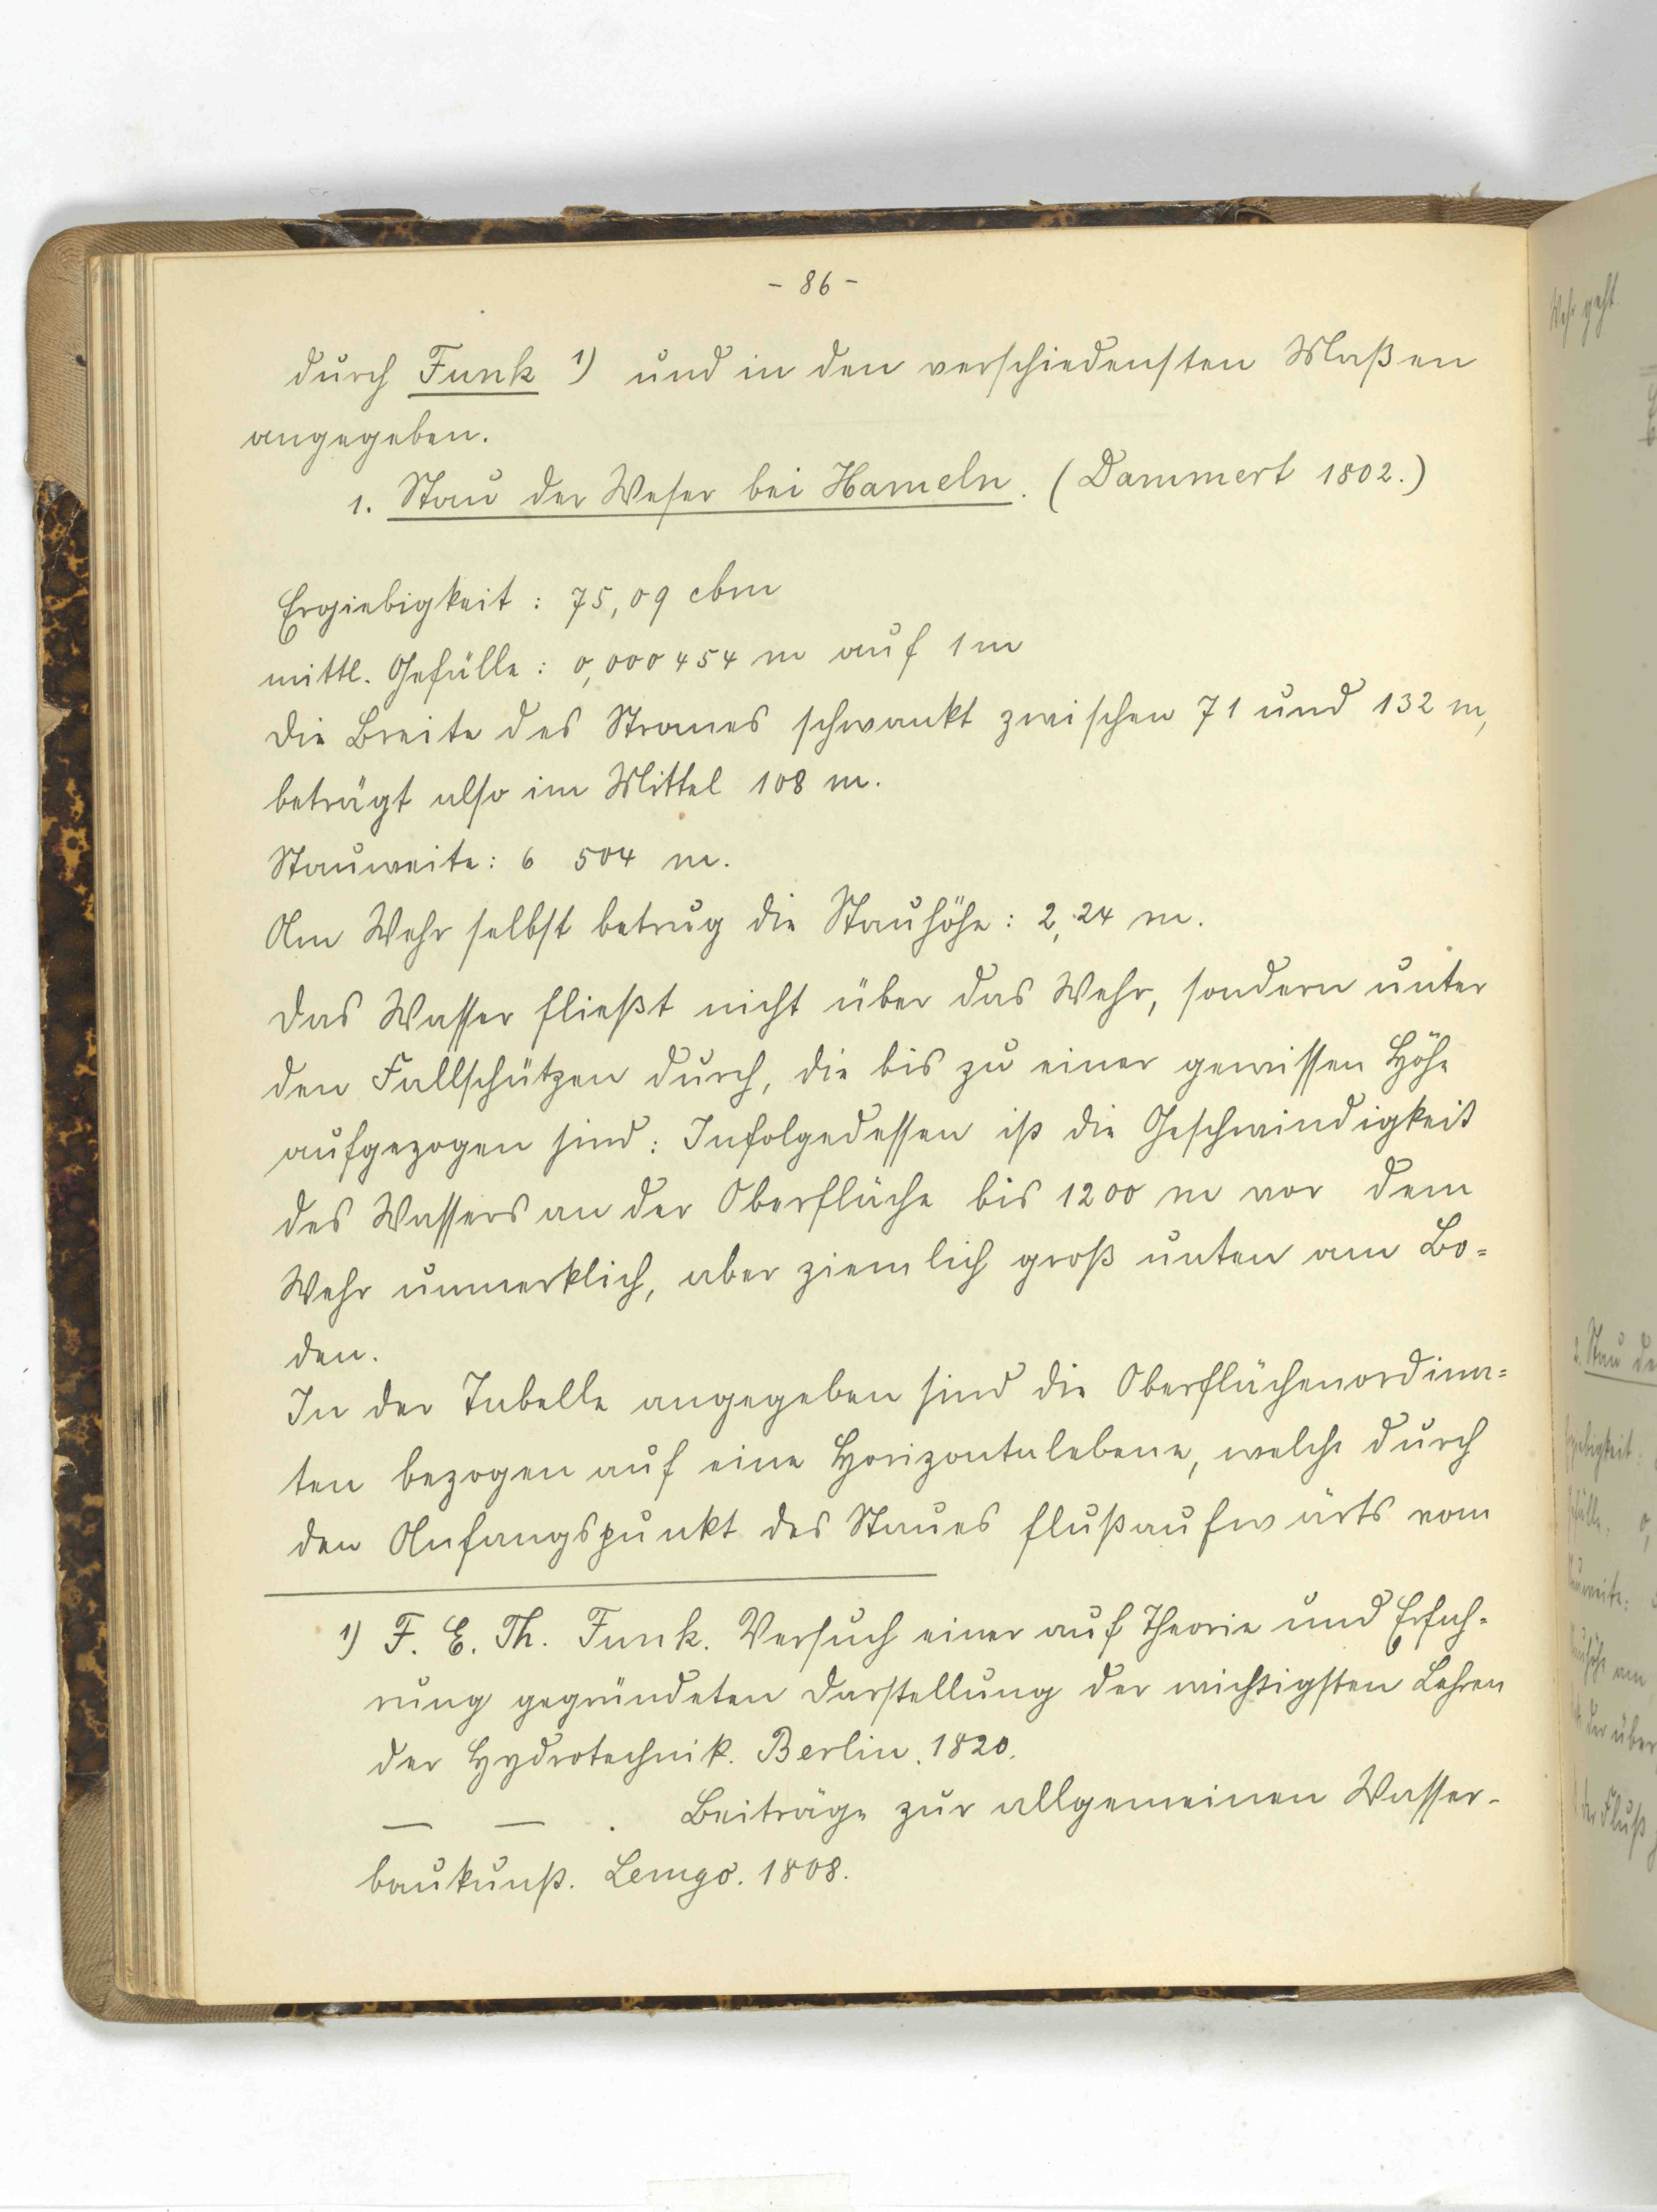 - 86 -
durch Funk 1) und in den verschiedensten Maßen
angegeben.
1. Stau der Weser bei Hameln. (Dammert 1802.)
Ergiebigkeit : 75,09 cbm
mittl. Gefälle : 0,000454 m auf 1 m
Die Breite des Stromes schwankt zwischen 71 und 132 m,
beträgt also im Mittel 108 m.
Stauweite : 6 504 m.
Am Wehr selbst betrug die Stauhöhe : 2,24 m.
Das Wasser fließt nicht über das Wehr, sondern unter
den Fallschützen durch, die bis zu einer gewissen Höhe
aufgezogen sind : Infolgedessen ist die Geschwindigkeit
des Wassers an der Oberfläche bis 1200 m vor dem
Wehr unmerklich, aber ziemlich groß unten am Bo=
den.
In der Tabelle angegeben sind die Oberflächenordina=
ten bezogen auf eine Horizontalebene, welche durch
den Anfangspunkt des Staues flußaufwärts vom
1) F. E. Th. Funk. Versuch einer auf Theorie und Erfah=
rung gegründeten Darstellung der wichtigsten Lehren
der Hydrotechnik. Berlin. 1820.
— — . Beiträge zur allgemeinen Wasser-
baukunst. Lemgo. 1808.
Wehr geht.
2. Stau de